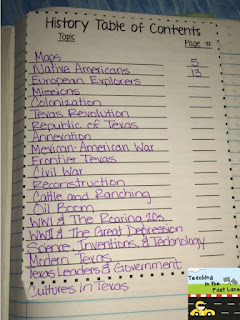 History Table of Contents
Topic Page #
Maps 5
Native Americans 13
European Explorers
Missions
Colonization
Texas Revolution
Republic of Texas
Annexation
Mexican-American War
Frontier Texas
Civil War
Reconstruction
Cattle and Ranching
Oil Boom
WWI & The Roaring 20s
WWII & The Great Depression
Science, Inventions, & Technology
Modern Texas
Texas Leaders & Government
Cultures in Texas
Teaching
in the
Fast Lane